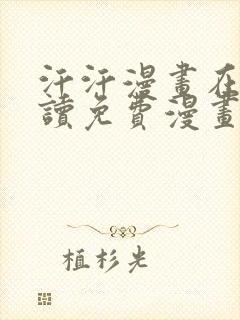 汗汗漫畫在
讀免費漫畫
植杉光